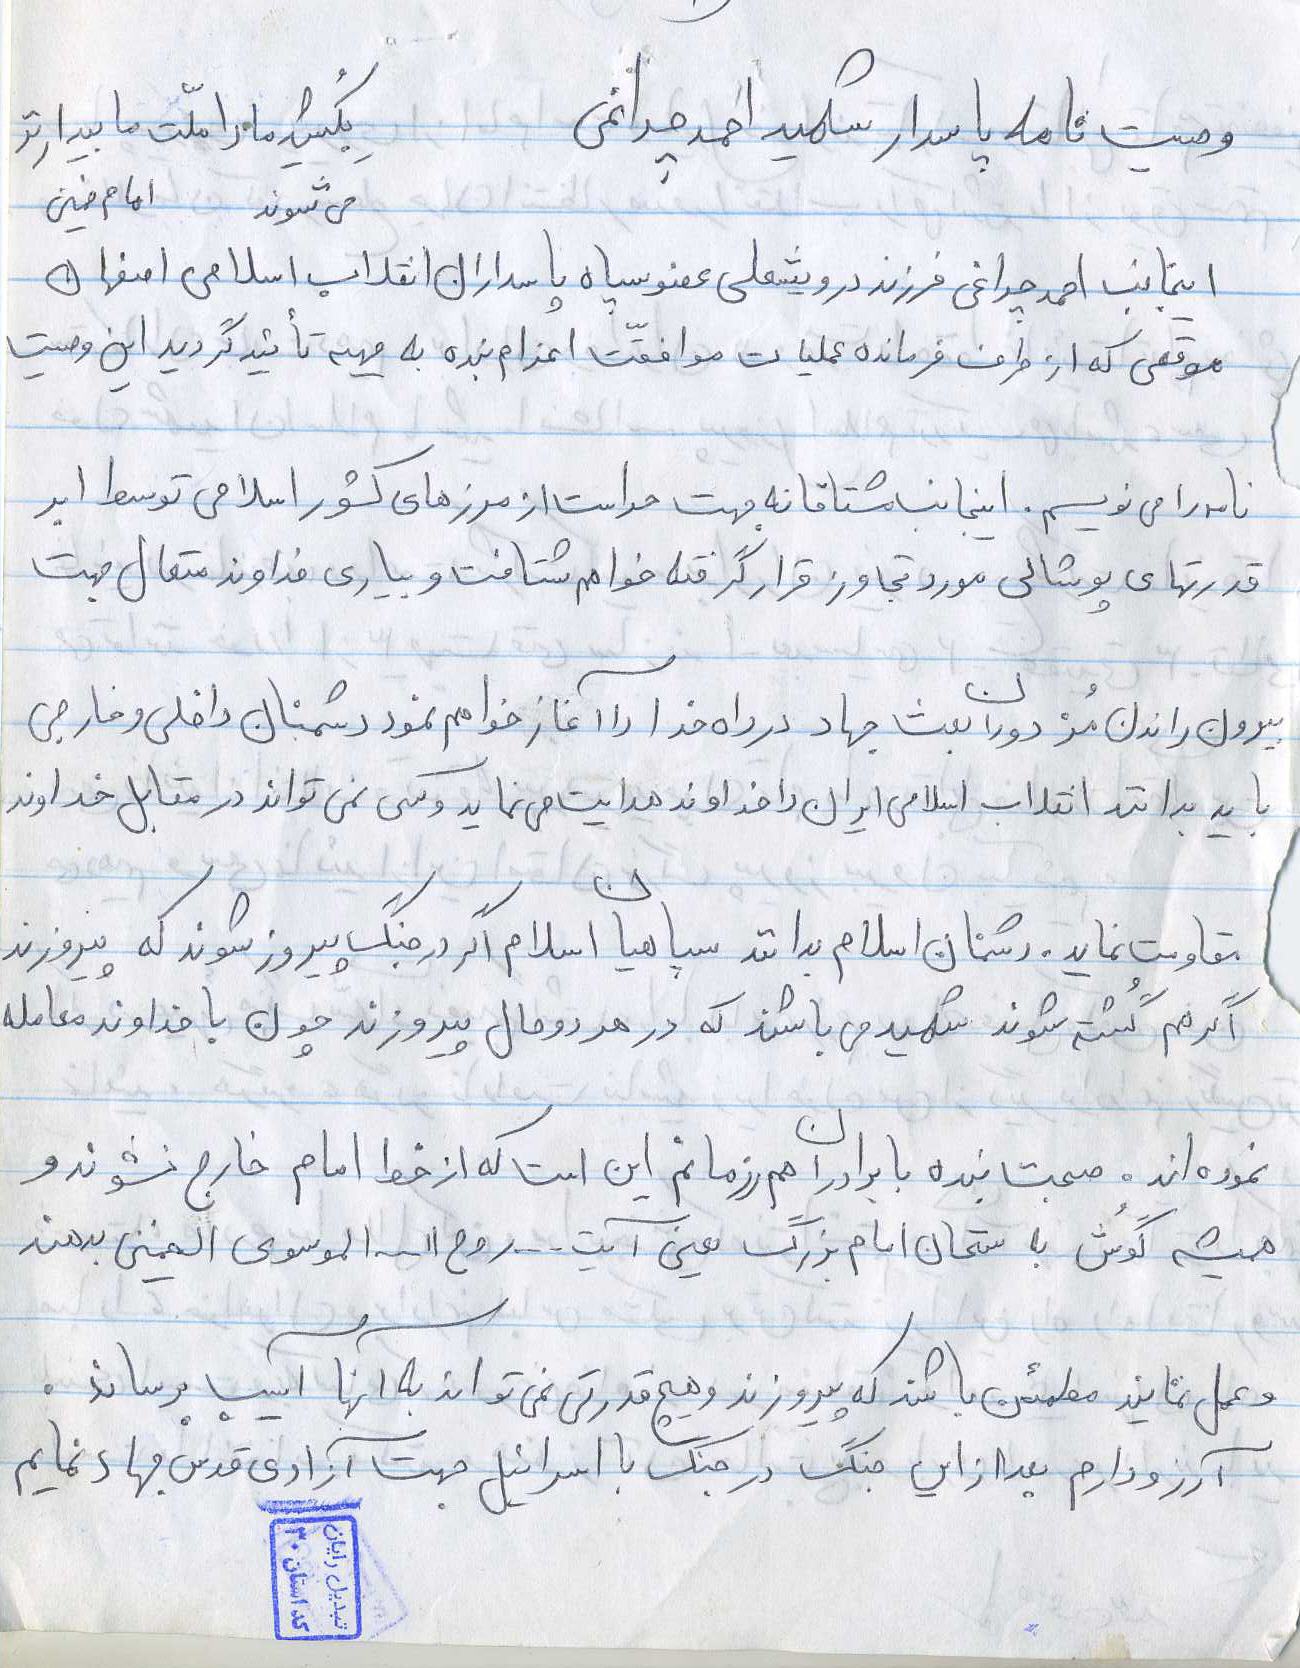 وصیت نامه پاسدار شهید احمد چراغی
بکُشید ما را ملّت ما بیدارتر
می شوند امام خمینی
اینجانب احمد چراغی فرزند درویشعلی عضو سپاه پاسداران انقلاب اسلامی اصفهان
موقعی که از طرف فرمانده عملیات موافقّت اعزام بنده به جبهه تأئید گردید این وصیت
نامه را می نویسم . اینجانب مشتاقانه جهت حراست از مرزهای کشور اسلامی توسط ابر
قدرتهای پوشالی مورد تجاوز قرار گرفته خواهم شتافت و بیاری خداوند متعال جهت
بیرون راندن مُزدوران بعث جهاد در راه خدا را آغاز خواهم نمود دشمنان داخلی و خارجی
باید بدانند انقلاب اسلامی ایران را خداوند هدایت می نماید و کسی نمی تواند در مقابل خداوند
مقاومت نماید . دشمنان اسلام بدانند سپاهیان اسلام اگر در جنگ پیروز شوند که پیروزند
اگر هم کُشته شوند شهید می باشند که در هر دو حال پیروزند چون با خداوند معامله
نموده اند . صحبت بنده با برادران همرزمانم این است که از خط امام خارج نشوند و
همیشه گوش به سخنان امام بزرگ یعنی آیت ... روح الله الموسوی الخمینی بدهند
و عمل نمایند مطمئن باشند که پیروزند و هیچ قدرتی نمی تواند به آنها آسیب برساند .
آرزو دارم بعد از این جنگ در جنگ با اسرائیل جهت آزادی قدس جهاد نمایم
تبدیل رایان
کد استان ۳۰